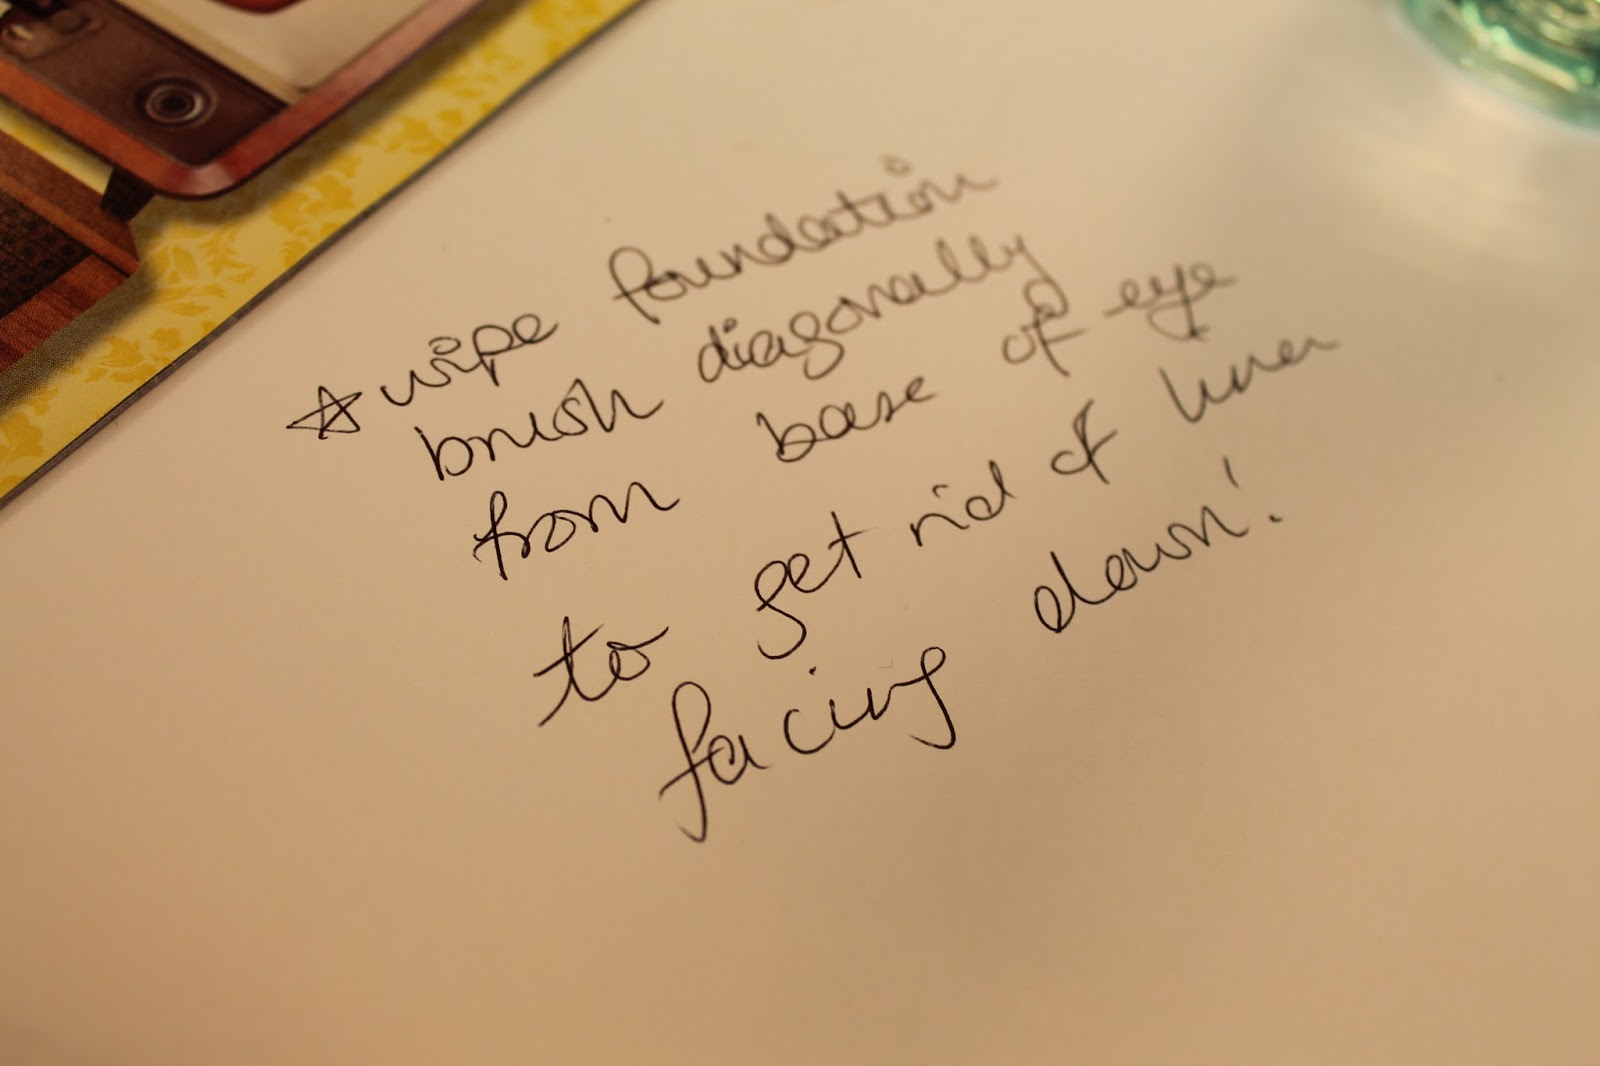 ☆ wipe foundation
brush diagonally
from base of eye
to get rid of liner
facing down!